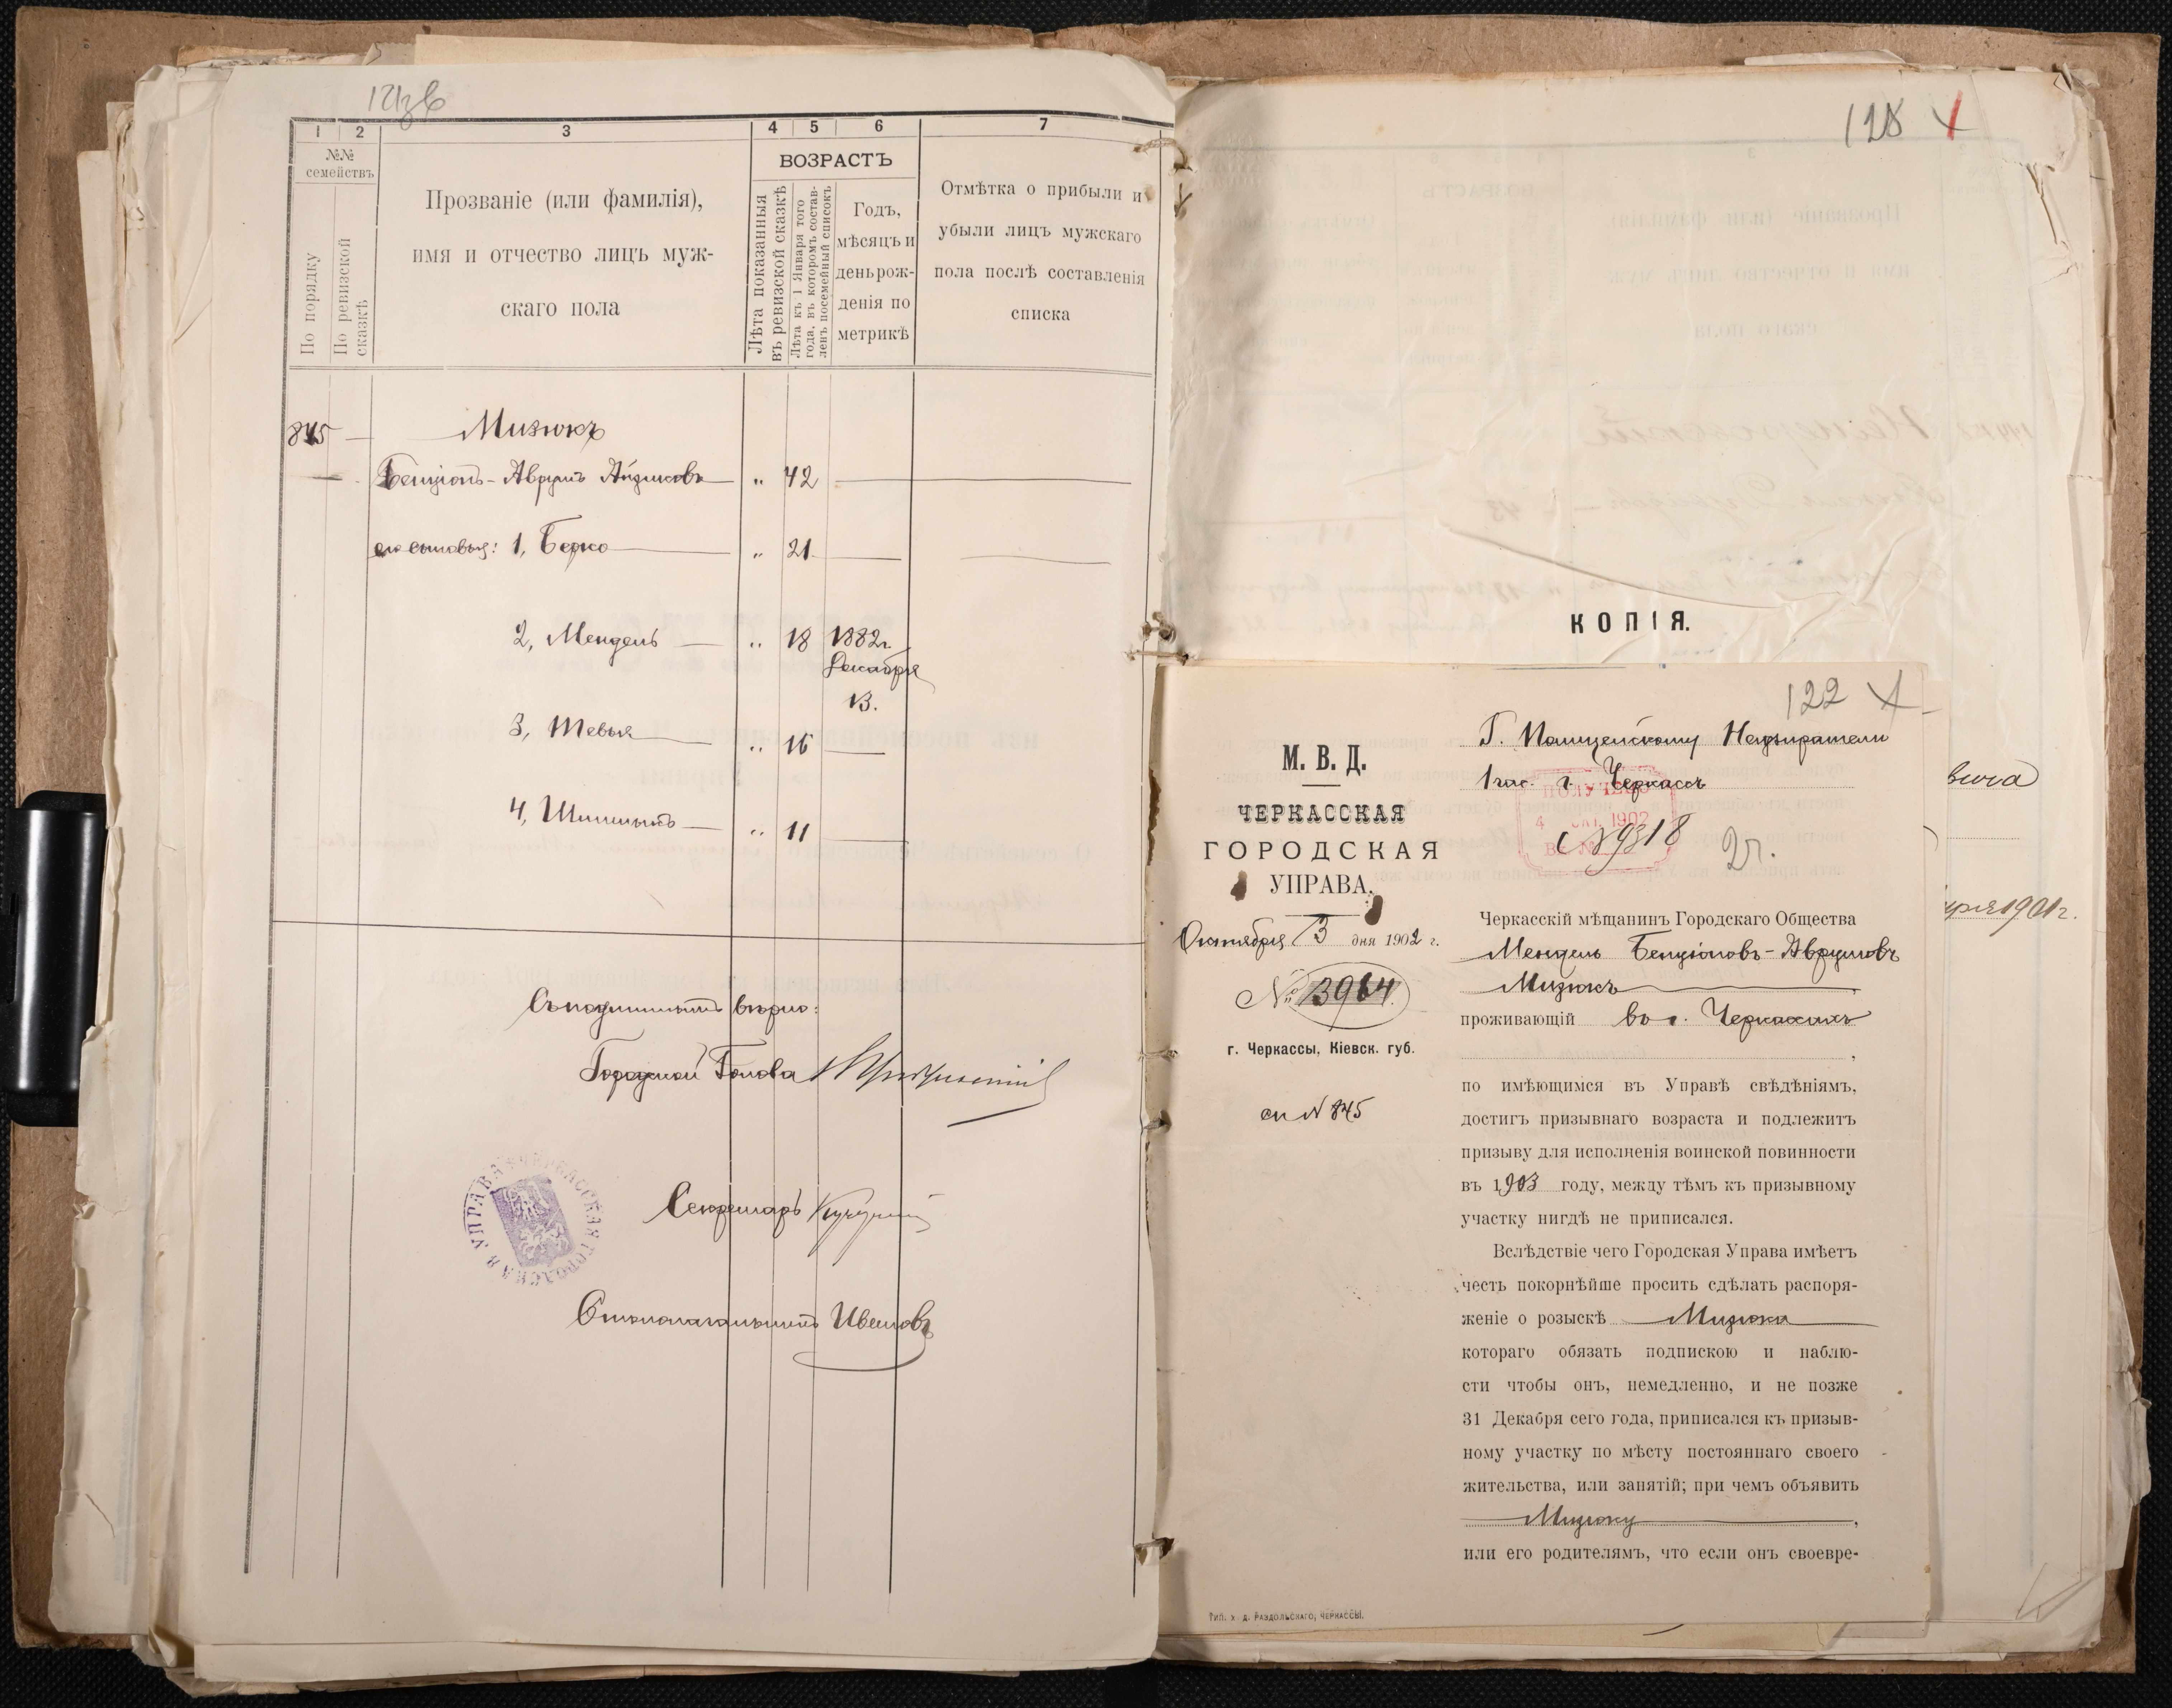 1 2 3 4 5 6 7
№№ семействъ
По порядку
По ревизской сказкѣ
Прозваніе (или фамилія),
имя и отчество лицъ муж-
скаго пола
ВОЗРАСТЪ
Лѣта показанныя въ ревизской сказкѣ
Лѣта къ 1 Января того года, въ которомъ состав-ленъ посемейный списокъ
Годъ,
мѣсяцъ и
день рож-
денія по
метрикѣ
Отмѣтка о прибыли и
убыли лицъ мужскаго
пола послѣ составленія
списка
845 — Мизюкъ
Бенціонъ-Аврумъ „ 42
его сыновья: 1, Берко „ 21
2, Мендель — „ 18 1882г.
Декабря
13.
3, Шевья „ 16
4, „ 11
Съ подлиннымъ вѣрно:
Городской Голова
Секретарь
ЧЕРКАССКАЯ ГОРОДСКАЯ УПРАВА
Столоначальникъ
128
КОПІЯ.
122
Г. Полицейскому Надзирателю
1 час. г. Черкассъ
ПОЛУЧЕНО
4 ОКТ. 1902
N 9318
2г.
М. В. Д.
ЧЕРКАССКАЯ
ГОРОДСКАЯ
УПРАВА.
Октября 3 дня 1902 г.
№ 13964.
г. Черкассы, Кіевск. губ.
сп N 845
Черкасскій мѣщанинъ Городскаго Общества
Мендель Бенціоновъ-Аврумовъ
Мизюкъ
проживающій въ г. Черкассахъ
,
по имѣющимся въ Управѣ свѣдѣніямъ,
достигъ призывнаго возраста и подлежитъ
призыву для исполненія воинской повинности
въ 1903 году, между тѣмъ къ призывному
участку нигдѣ не приписался.
Вслѣдствіе чего Городская Управа имѣетъ
честь покорнѣйше просить сдѣлать распоря-
женіе о розыскѣ Мизюка
котораго обязать подпискою и наблю-
сти чтобы онъ, немедленно, и не позже
31 Декабря сего года, приписался къ призыв-
ному участку по мѣсту постояннаго своего
жительства, или занятій; при чемъ объявить
Мизюку ,
или его родителямъ, что если онъ своевре-
вича
1901г.
ТИП. Х. Д. РАЗДОЛЬСКАГО, ЧЕРКАССЫ.